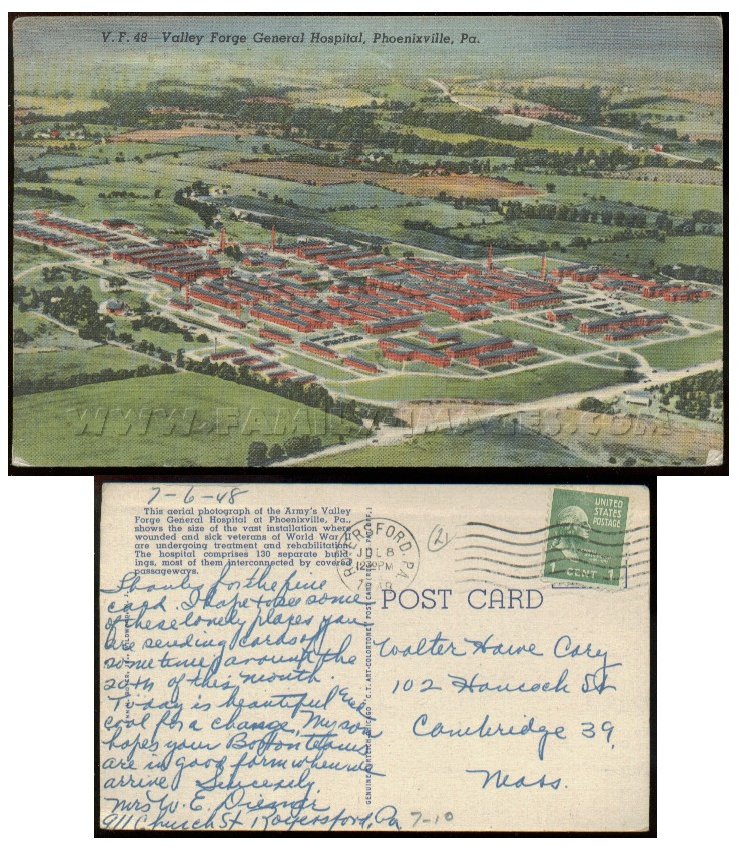 V. F. 48—Valley Forge General Hospital, Phoenixville, Pa.
WWW.FAMILY-IMAGES.COM
7-6-48
This aerial photograph of the Army's Valley
Forge General Hospital at Phoenixville, Pa.,
shows the size of the vast installation where
wounded and sick veterans of World War II
are undergoing treatment and rehabilitation.
The hospital comprises 130 separate build-
ings, most of them interconnected by covered
passageways.
Thanks for the fine
card. I hope to see some
of these lovely places you
are sending cards of
sometime around the
20th of this month.
Today is beautiful and
cool for a change, My son
hopes your Boston teams
are in good form when we
arrive Sincerely,
Mrs W. E. Diemer
911 Church St Royersford, Pa
7-10
GENUINE CURTEICH-CHICAGO "C.T. ART-COLORTONE" POST CARD
ROYERSFORD, PA.
JUL 8
12:30 PM
21
UNITED
STATES
POSTAGE
1 CENT 1
POST CARD
Walter Howe Cory
102 Hancock St
Cambridge 39,
Mass.